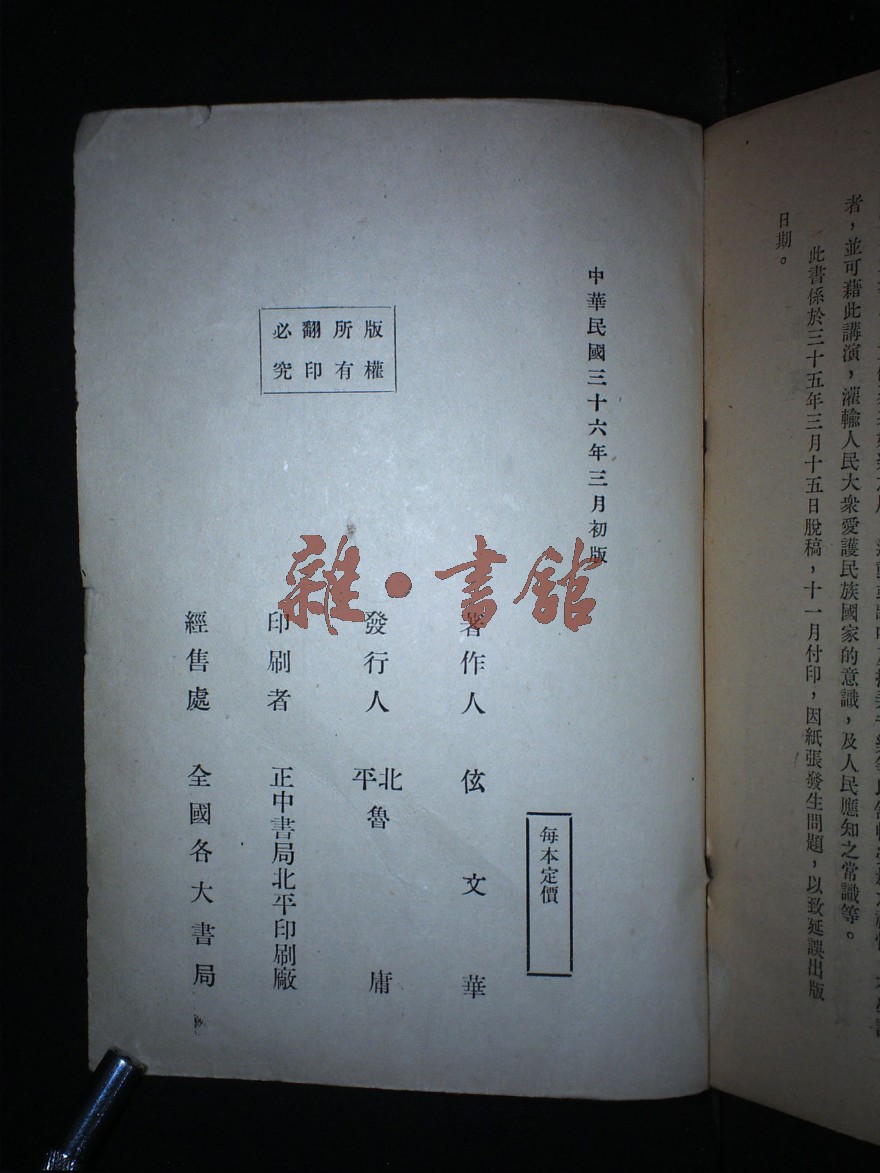 者，並可藉此講演，灌輸人民大衆愛護民族國家的意識，及人民應知之常識等。
此書係於三十五年三月十五日脫稿，十一月付印，因紙張發生問題，以致延誤出版
日期。
中華民國三十六年三月初版
版權
所有
翻印
必究
每本定價
著作人 伭文華
發行人 北平魯庸
印刷者 正中書局北平印刷廠
經售處 全國各大書局
雜·書館